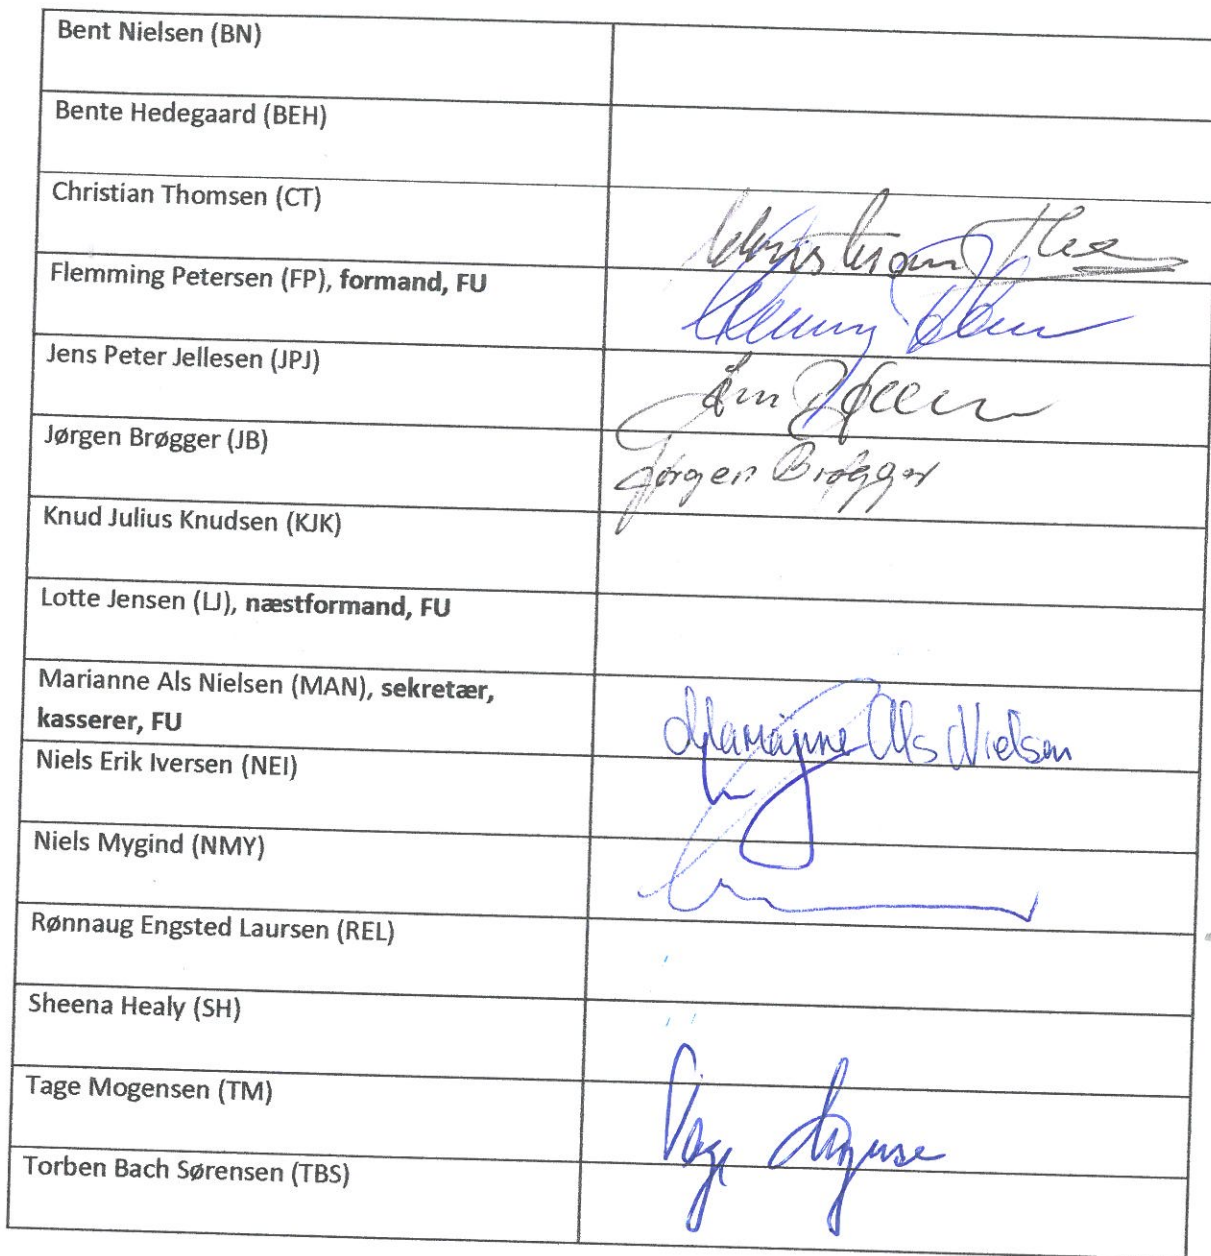 Bent Nielsen (BN)
Bente Hedegaard (BEH)
Christian Thomsen (CT)
Christian
Flemming Petersen (FP), formand, FU
Flemming
Jens Peter Jellesen (JPJ)
Jørgen Brøgger (JB)
Jørgen Brøgger
Knud Julius Knudsen (KJK)
Lotte Jensen (LJ), næstformand, FU
Marianne Als Nielsen (MAN), sekretær,
kasserer, FU
Marianne Als Nielsen
Niels Erik Iversen (NEI)
Niels Mygind (NMY)
Rønnaug Engsted Laursen (REL)
Sheena Healy (SH)
Tage Mogensen (TM)
Tage
Torben Bach Sørensen (TBS)